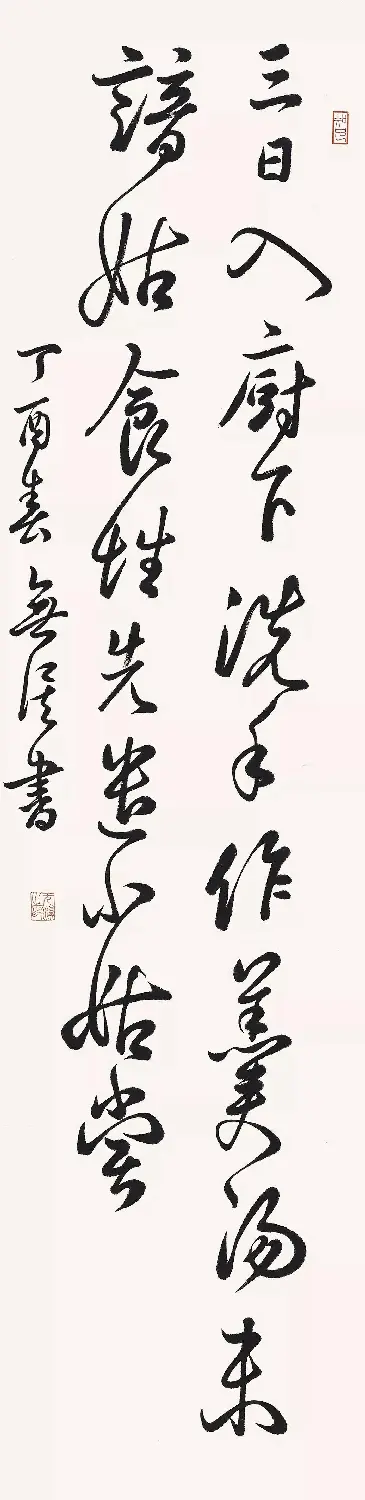 三日入廚下洗手作羹湯未
諳姑食性先遣小姑嘗
丁酉春無溪書